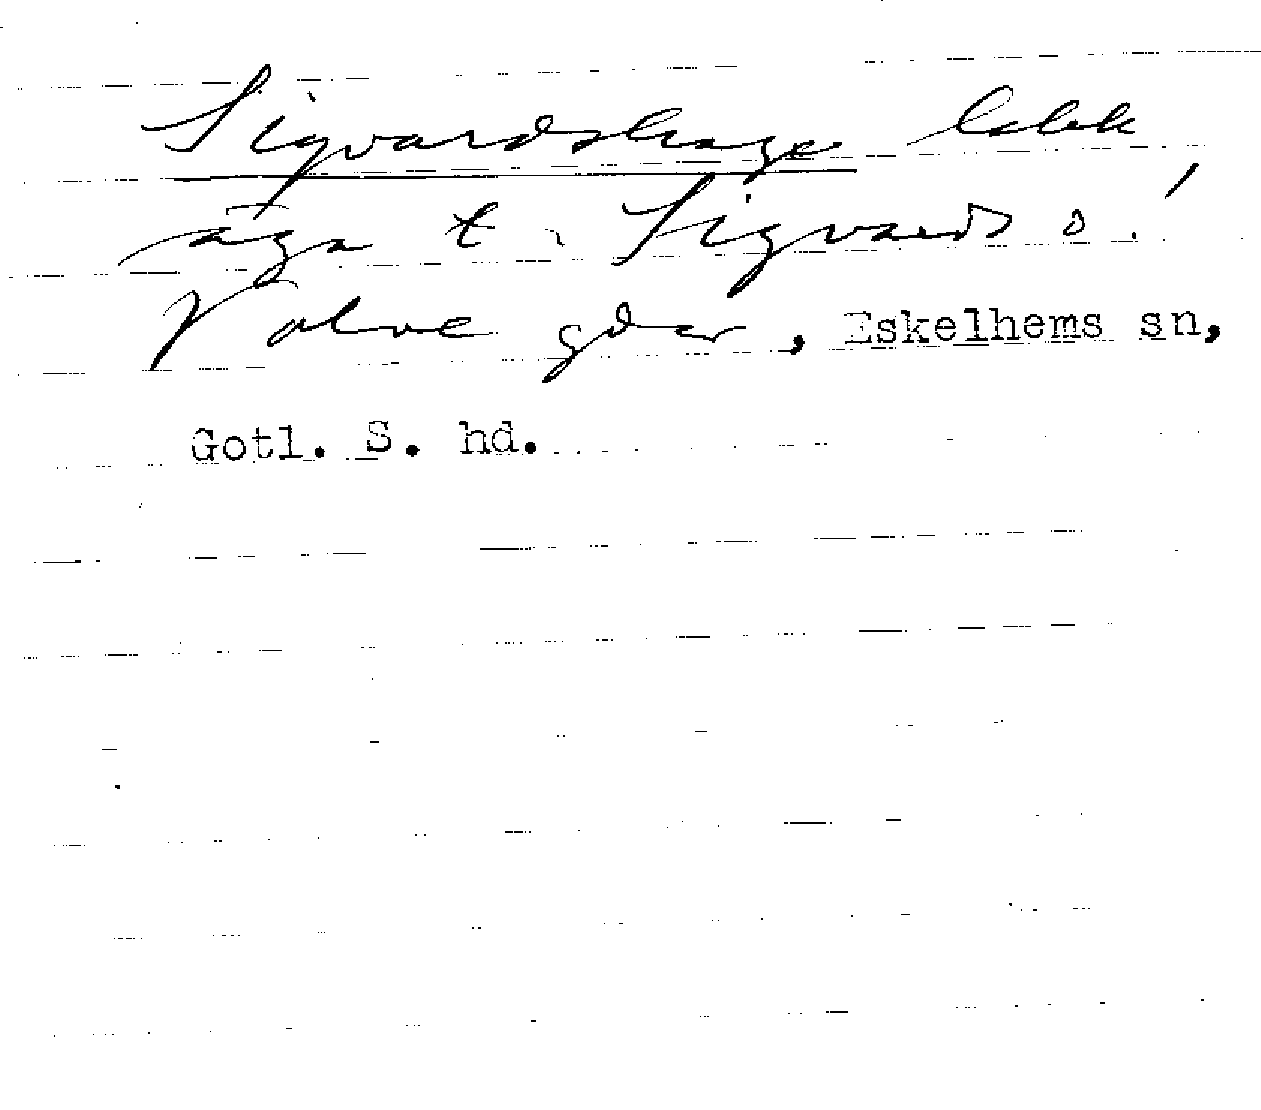 Sigvardshage
äga t. Sigvards o.
Valve gdar, Eskelhems sn,
Gotl. S. hd.